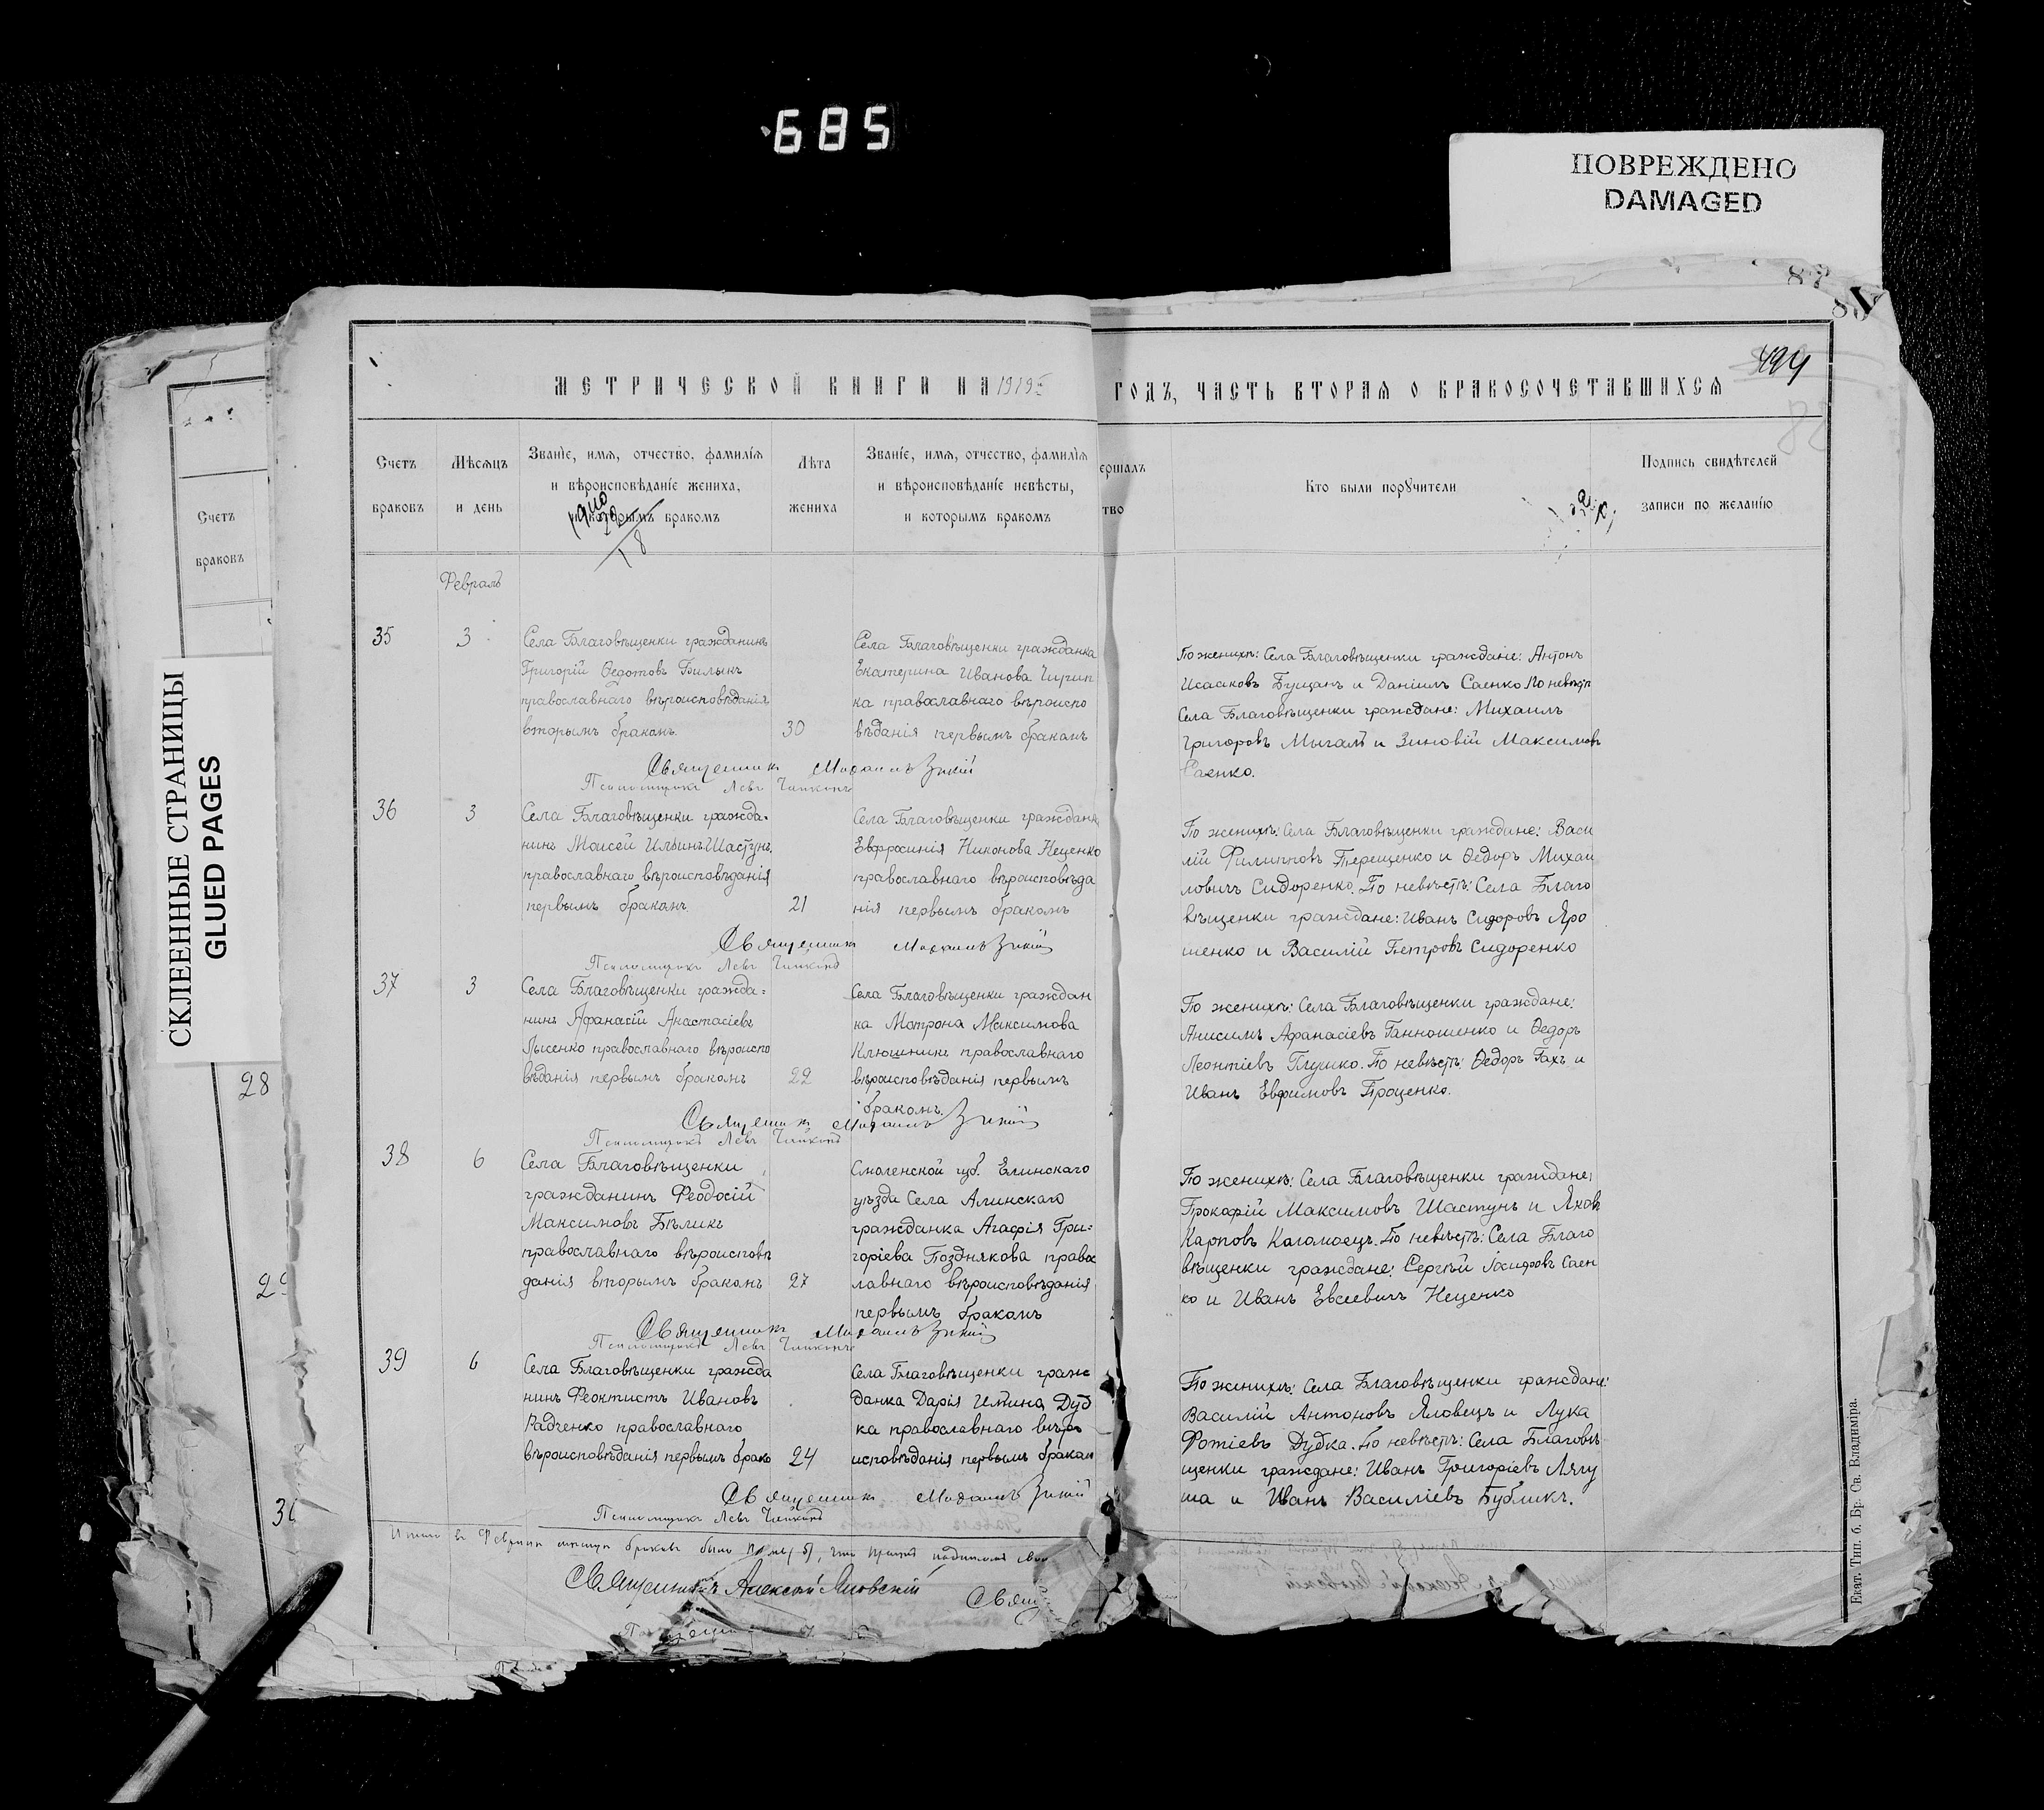 685
ПОВРЕЖДЕНО
DAMAGED
СКЛЕЕННЫЕ СТРАНИЦЫ
GLUED PAGES
Счетъ
браковъ
28
494
МЕТРИЧЕСКОЙ КНИГИ НА 1919 ГОДЪ, ЧАСТЬ ВТОРАЯ О БРАКОСОЧЕТАВШИХСЯ
Счетъ браковъ
Мѣсяцъ и день
Званіе, имя, отчество, фамилія
и вѣроисповѣданіе жениха,
и которымъ бракомъ
Лѣта жениха
Званіе, имя, отчество, фамилія
и вѣроисповѣданіе невѣсты,
и которымъ бракомъ
ершалъ
тво
Кто были поручители
Подпись свидѣтелей
записи по желанію
Февраль
35 3
Села Благовѣщенки гражданинъ
Григорій Ѳедотовъ Билыкъ
православнаго вѣроисповѣданія
вторымъ бракомъ.
30
Села Благовѣщенки гражданка
Екатерина Иванова Чирип
ка православнаго вѣроиспо
вѣданія первымъ бракомъ
По женихѣ: Села Благовѣщенки граждане: Антонъ
Исааковъ Бущанъ и Даніилъ Саенко По невѣстѣ
Села Благовѣщенки граждане: Михаилъ
Григоровъ Мигаль и Зиновій Максимовъ
Саенко.
Священникъ Михаилъ Зикій
Псаломщикъ Левъ
36 3
Села Благовѣщенки гражда-
нинъ Моисей Ильинъ Шастунъ
православнаго вѣроисповѣданія
первымъ бракомъ.
21
Села Благовѣщенки гражданк
Евфросинія Никонова Кеценко
православнаго вѣроисповѣда
нія первымъ бракомъ
По женихѣ: Села Благовѣщенки граждане: Васи
лій Филипповъ Терещенко и Ѳедоръ Михаи
ловичъ Сидоренко. По невѣстѣ: Села Благо
вѣщенки граждане: Иванъ Сидоровъ Яро
шенко и Василій Петровъ Сидоренко
Священникъ Михаилъ Зикій
Псаломщикъ Левъ
37 3
Села Благовѣщенки гражда=
нинъ Афанасій Анастасіевъ
Лысенко православнаго вѣроиспо
вѣданія первымъ бракомъ
22
Села Благовѣщенки граждан
ка Матрона Максимова
Клюшникъ православнаго
вѣроисповѣданія первымъ
бракомъ.
По женихѣ: Села Благовѣщенки граждане:
Анисимъ Афанасіевъ Ганношенко и Ѳедоръ
Леонтіевъ Глушко. По невѣстѣ: Ѳедоръ Гахъ и
Иванъ Евфимовъ Проценко.
Священникъ Михаилъ Зикій
Псаломщикъ Левъ
38 6
Села Благовѣщенки
гражданинъ Феодосій
Максимовъ Бѣликъ
православнаго вѣроисповѣ
данія вторымъ бракомъ
27
Смоленской губ. Елинскаго
уѣзда Села Алинскаго
гражданка Агафія Гри=
горіева Позднякова правос
лавнаго вѣроисповѣданія
первымъ бракомъ
По женихѣ: Села Благовѣщенки граждане:
Прокофій Максимовъ Шастунъ и Яковъ
Карповъ Коломоецъ. По невѣстѣ: Села Благо
вѣщенки граждане: Сергѣй Іосифовъ Саен
ко и Иванъ Евсеевичъ Кеценко
Священникъ Михаилъ Зикій
Псаломщикъ Левъ
39 6
Села Благовѣщенки гражда
нинъ Феоктистъ Ивановъ
Радченко православнаго
вѣроисповѣданія первымъ брако
24
Села Благовѣщенки граж
данка Дарія Ильина Дуд
ка православнаго вѣро
исповѣданія первымъ бракам
По женихѣ: Села Благовѣщенки граждане:
Василій Антоновъ Яловецъ и Лука
Фотіевъ Дудка. По невѣстѣ: Села Благовѣ
щенки граждане: Иванъ Григоріевъ Лягу
ша и Иванъ Василіевъ Бубликъ.
Священникъ Михаилъ Зикій
Псаломщикъ Левъ
Итого въ Февралѣ мѣсяцѣ браковъ было
Священникъ Алексій Яновскій
Свящ
Екат. Тип. б. Бр. Св. Владиміра.